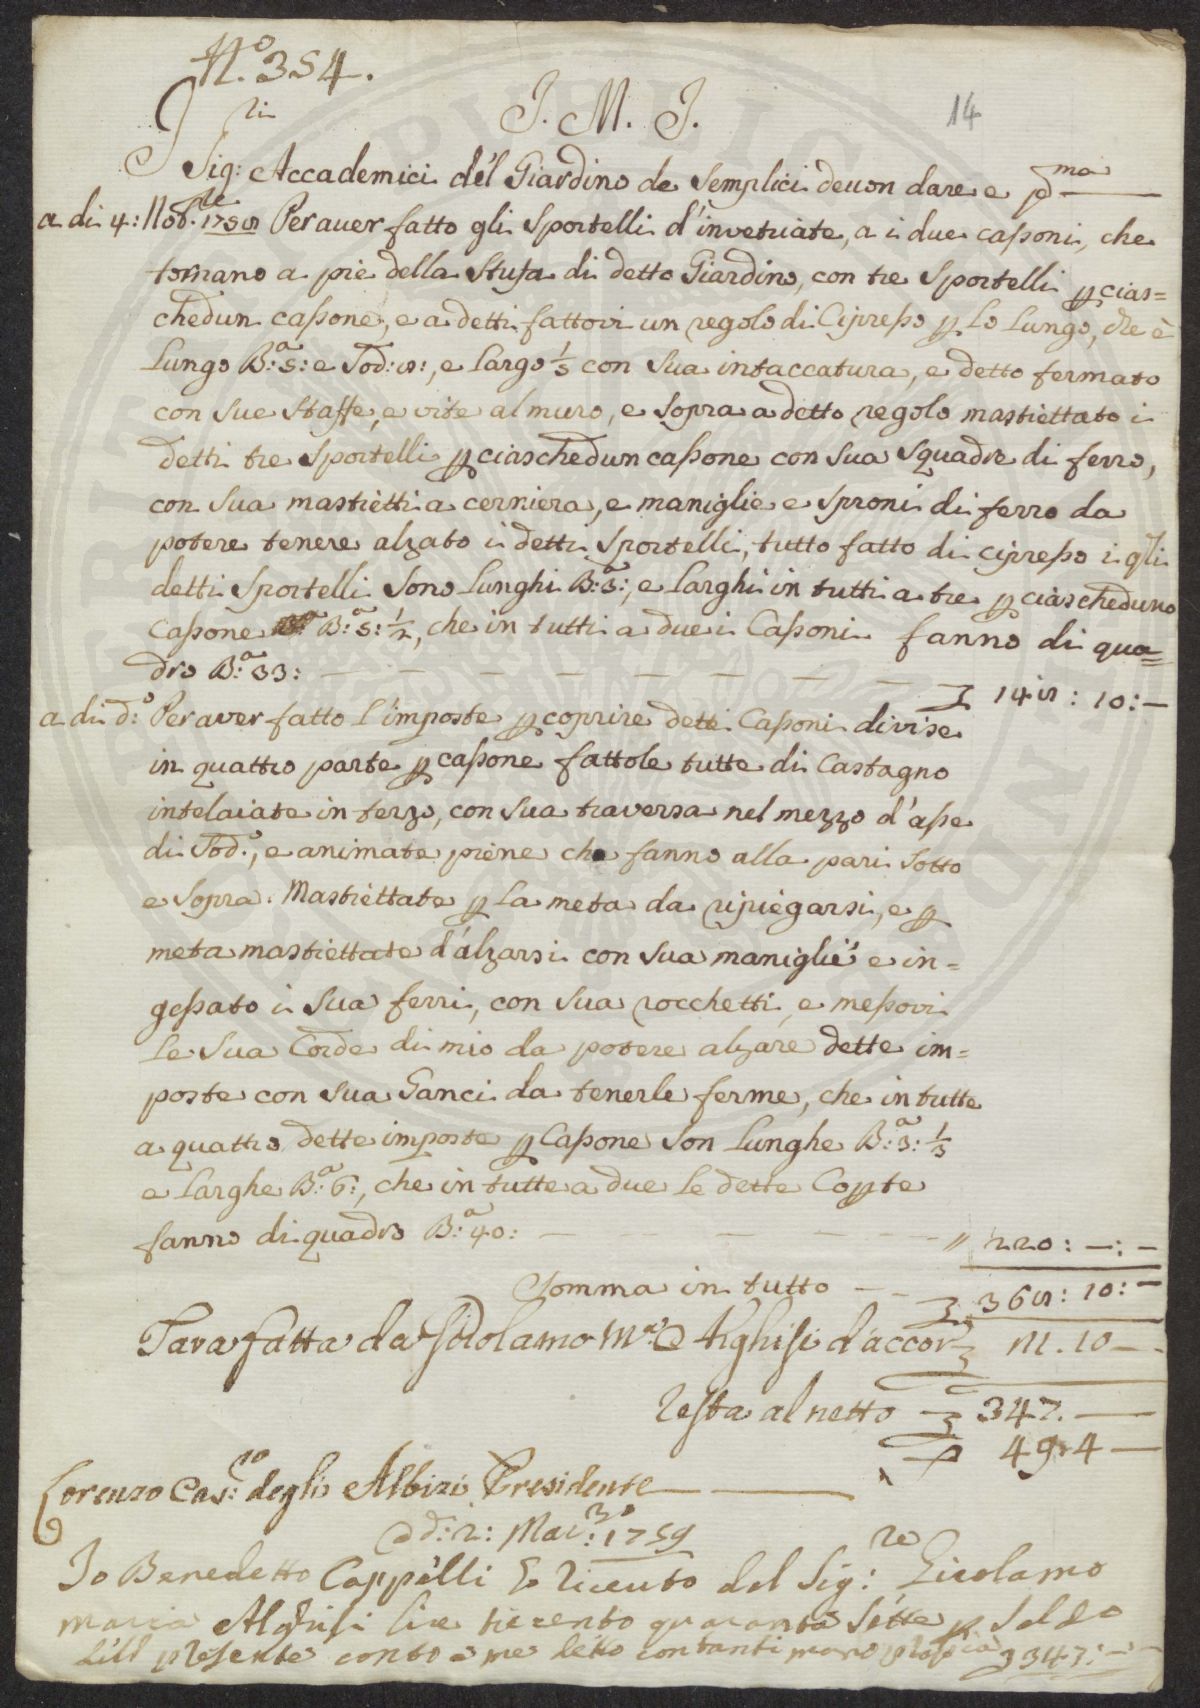 N.º 354.
14
J. M. J.
Jll.ri
Sig: Accademici del Giardino de Semplici deuon dare e p ma
a di 4: Nob.re 1758 Per auer fatto gli Sportelli d'invetriate, a i due cassoni, che
tornano a piè della Stufa di detto Giardino, con tre Sportelli p cias=
chedun cassone, e a detti fattovi un regolo di Cipresso p lo lungo, che è
lungo B.a 5: e Sod: 8:, e largo 1/3 con sua intaccatura, e detto fermato
con sue staffe, e vite al muro, e sopra a detto regolo mastiettato i
detti tre Sportelli p ciaschedun cassone con sua squadre di ferro,
con sua mastietti a cerniera, e maniglie e sproni di ferro da
potere tenere alzato i detti Sportelli, tutto fatto di cipresso i qli
detti Sportelli sono lunghi B.a 3:, e larghi in tutti a tre p ciascheduno
Cassone B.a 5: 1/2, che in tutti a due i Cassoni fanno di qua=
dro B.a 33: — — — — — — — — £ 148 : 10 : —
a di d:o Per aver fatto l'imposte p coprire detti Cassoni divise
in quattro parte p cassone fattole tutte di Castagno
intelaiate in terzo, con sua traversa nel mezzo d'asse
di Sod.o, e animate piene che fanno alla pari sotto
e sopra. Mastiettate p la meta da ripiegarsi, e p
meta mastiettate d'alzarsi con sua maniglie e in=
gessato i sua ferri, con sua rocchetti, e messovi
le sua Corde di mio da potere alzare dette im=
poste con sua Ganci da tenerle ferme, che in tutte
a quattro dette imposte p Cassone son lunghe B.a 3: 1/3
e larghe B.a 6:, che in tutte a due le dette Copte
fanno di quadro B.a 40: — — — — — " 220 : — : —
Somma in tutto — — £ 368 : 10 : —
Tara fatta da Girolamo M.a Alghisi d'accor £ 21 . 10 —
Resta al netto — £ 347. —
49. 4 —
Lorenzo Cas:ro degli Albizi Presidente
A d: 2: Mar:zo 1759
Io Benedetto Cappelli ò riceuto dal Sig:re Girolamo
Maria Alghisi lire trecento quaranta sette p saldo
dell presente conto a me detto contanti mano propria £ 347: —